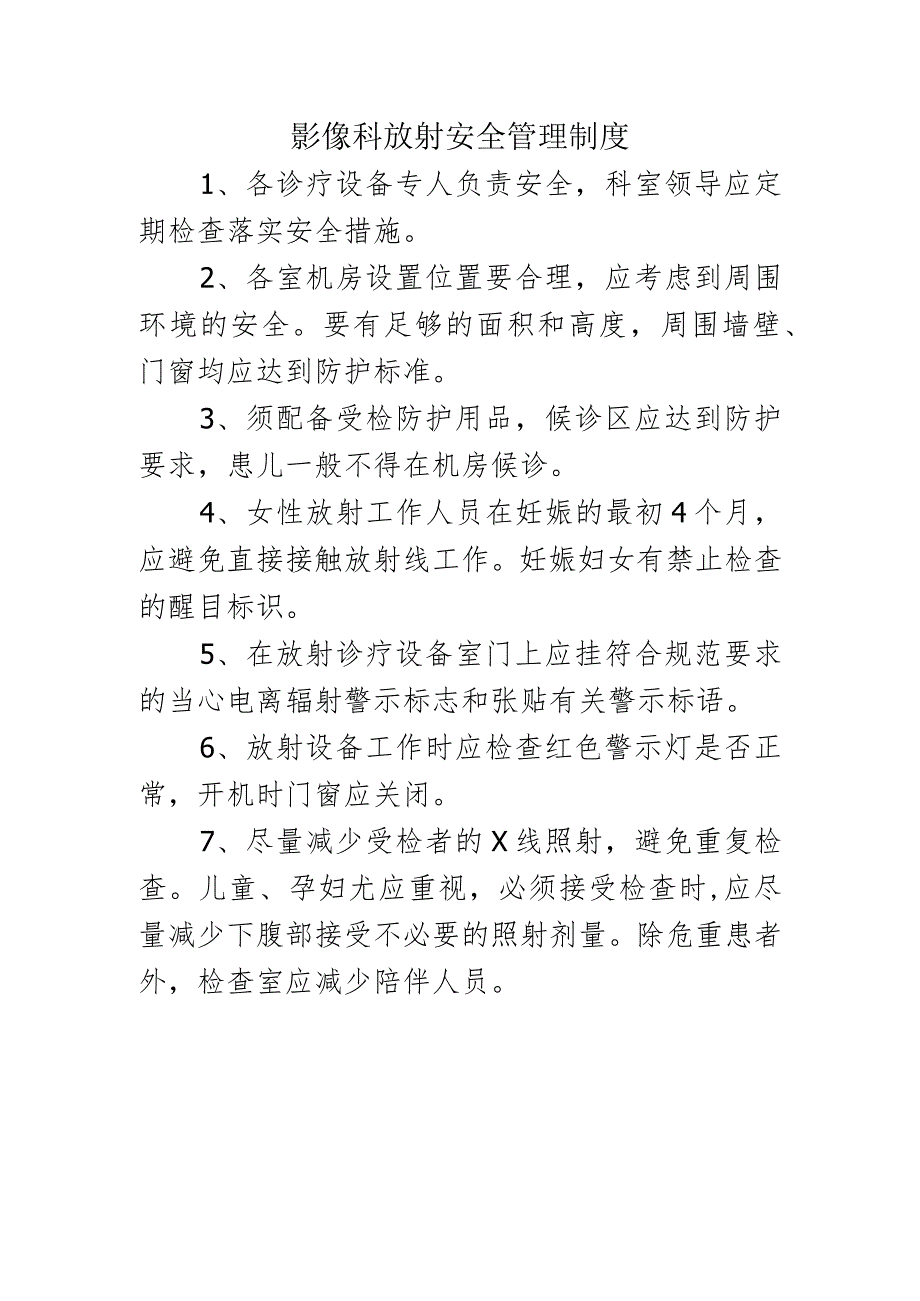 影像科放射安全管理制度
1、各诊疗设备专人负责安全，科室领导应定
期检查落实安全措施。
2、各室机房设置位置要合理，应考虑到周围
环境的安全。要有足够的面积和高度，周围墙壁、
门窗均应达到防护标准。
3、须配备受检防护用品，候诊区应达到防护
要求，患儿一般不得在机房候诊。
4、女性放射工作人员在妊娠的最初4个月，
应避免直接接触放射线工作。妊娠妇女有禁止检查
的醒目标识。
5、在放射诊疗设备室门上应挂符合规范要求
的当心电离辐射警示标志和张贴有关警示标语。
6、放射设备工作时应检查红色警示灯是否正
常，开机时门窗应关闭。
7、尽量减少受检者的X线照射，避免重复检
查。儿童、孕妇尤应重视，必须接受检查时,应尽
量减少下腹部接受不必要的照射剂量。除危重患者
外，检查室应减少陪伴人员。